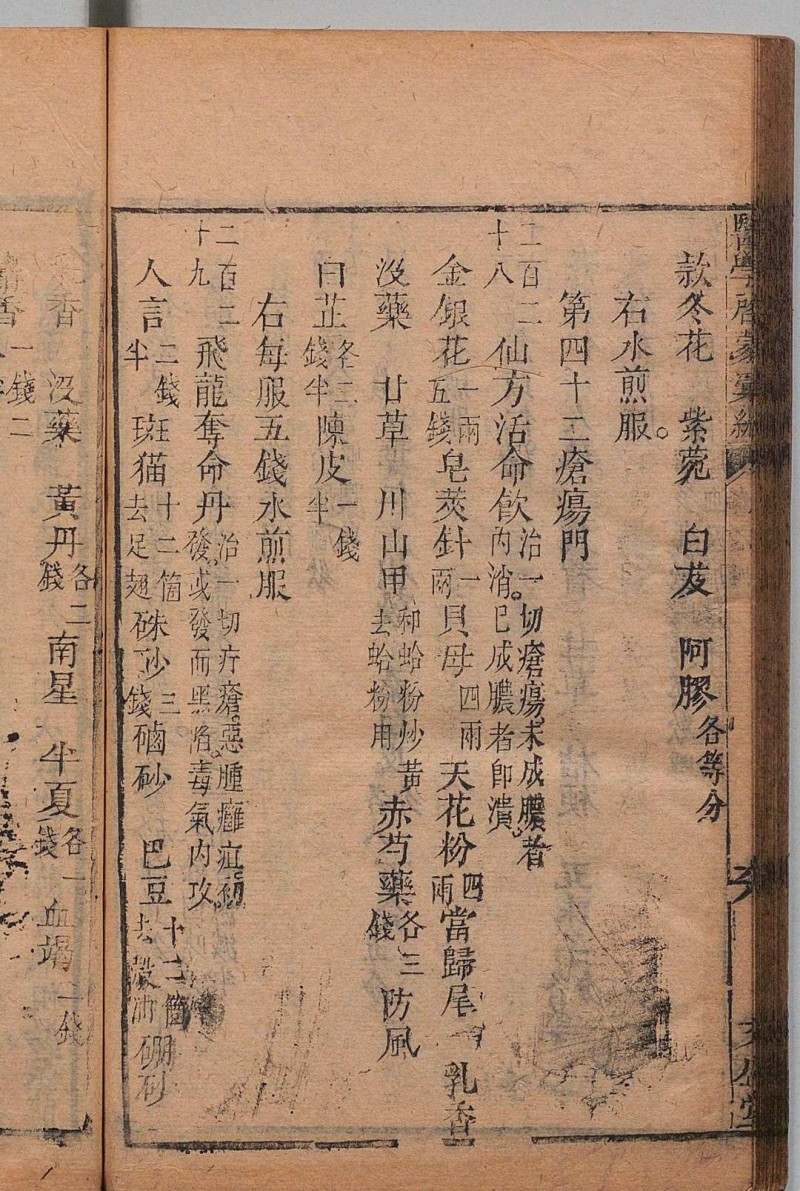 醫學啓蒙彙編
款冬花 紫菀 白芨 阿膠各等分
右水煎服。
第四十二瘡瘍門
二百二十八 仙方活命飲治一切瘡瘍未成膿者內消。已成膿者即潰。
金銀花一兩五錢 皂莢針一兩 貝母四兩 天花粉四兩 當歸尾 乳香
沒藥 甘草 川山甲和蛤粉炒黃去蛤粉用 赤芍藥各三錢 防風
白芷各二錢半 陳皮一錢半
右每服五錢水煎服
二百二十九 飛龍奪命丹治一切疔瘡惡腫癰疽初發或發而黑陷毒氣內攻
人言二錢半 斑猫十二箇去足翅 硃砂三錢 硇砂 巴豆十二箇去殼油 硼砂
香 沒藥 黃丹各二錢 南星 半夏各一錢 血竭二錢
香一錢二